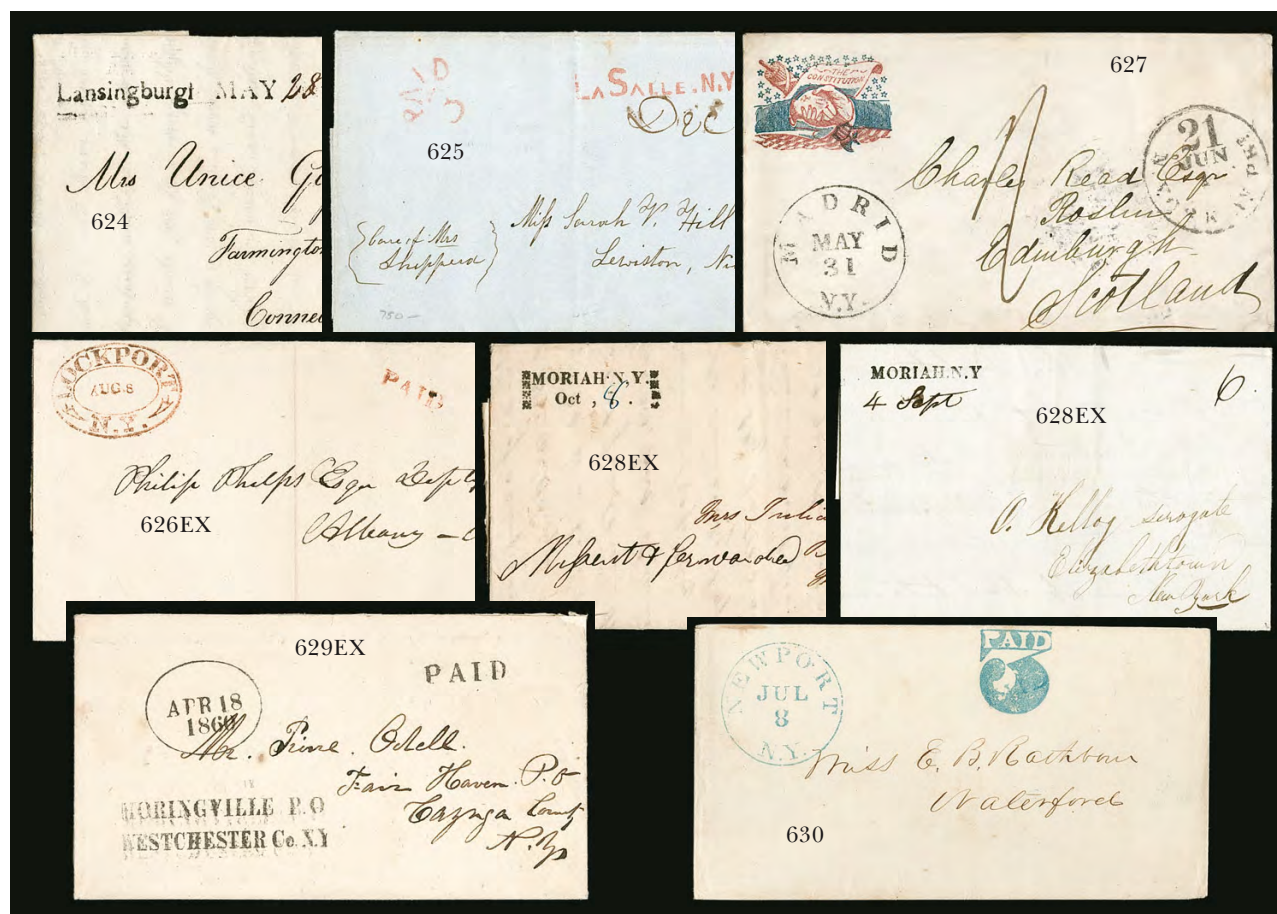 Lansingburgh MAY 28
Mrs Unice
624
Farmington
Connec
PAID
3
LA SALLE. N.Y
Dec
625
Miss Sarah V. Hill
Care of Mrs
Shipperd
Lewiston, Ni
750 —
THE
CONSTITUTION
627
21
JUN
N. YORK AM. PKT
Charles Read Esqr
Roslin
Edinburgh
Scotland
MADRID
MAY
31
N.Y.
LOCKPORT
AUG. 8
N.Y.
PAID
Philip Phelps Esqr Depty
626EX
Albany
MORIAH N.Y.
Oct , 8.
628EX
Mrs Julia
Missent & forwarded
MORIAH. N.Y
4 Sept
6
628EX
O. Kellog surogate
Elizabethtown
New York
629EX
PAID
APR 18
1860
Mr. Prine Odell.
Fair Haven P.O
Cayuga County
N.Y.
MORINGVILLE P.O
WESTCHESTER Co. N.Y
NEWPORT
JUL
8
N.Y.
PAID
3
Miss E. B. Rathbun
Waterford
630